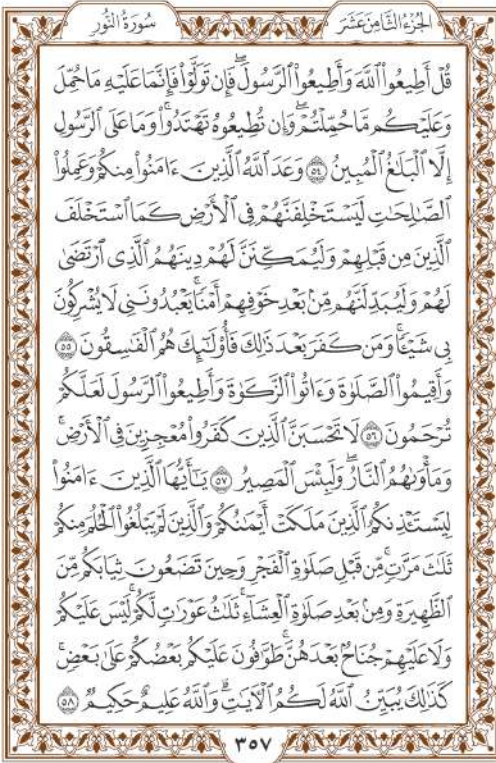 سُورَةُ النُّورِ
الجُزْءُ الثَّامِنَ عَشَرَ
قُلْ أَطِيعُواْ ٱللَّهَ وَأَطِيعُواْ ٱلرَّسُولَۖ فَإِن تَوَلَّوْاْ فَإِنَّمَا عَلَيْهِ مَا حُمِّلَ
وَعَلَيْكُم مَّا حُمِّلْتُمْۖ وَإِن تُطِيعُوهُ تَهْتَدُواْۚ وَمَا عَلَى ٱلرَّسُولِ
إِلَّا ٱلْبَلَٰغُ ٱلْمُبِينُ ٥٤ وَعَدَ ٱللَّهُ ٱلَّذِينَ ءَامَنُواْ مِنكُمْ وَعَمِلُواْ
ٱلصَّٰلِحَٰتِ لَيَسْتَخْلِفَنَّهُمْ فِي ٱلْأَرْضِ كَمَا ٱسْتَخْلَفَ
ٱلَّذِينَ مِن قَبْلِهِمْ وَلَيُمَكِّنَنَّ لَهُمْ دِينَهُمُ ٱلَّذِي ٱرْتَضَىٰ
لَهُمْ وَلَيُبَدِّلَنَّهُم مِّنۢ بَعْدِ خَوْفِهِمْ أَمْنًاۚ يَعْبُدُونَنِي لَا يُشْرِكُونَ
بِي شَيْـًٔاۚ وَمَن كَفَرَ بَعْدَ ذَٰلِكَ فَأُوْلَٰٓئِكَ هُمُ ٱلْفَٰسِقُونَ ٥٥
وَأَقِيمُواْ ٱلصَّلَوٰةَ وَءَاتُواْ ٱلزَّكَوٰةَ وَأَطِيعُواْ ٱلرَّسُولَ لَعَلَّكُمْ
تُرْحَمُونَ ٥٦ لَا تَحْسَبَنَّ ٱلَّذِينَ كَفَرُواْ مُعْجِزِينَ فِي ٱلْأَرْضِۚ
وَمَأْوَىٰهُمُ ٱلنَّارُۖ وَلَبِئْسَ ٱلْمَصِيرُ ٥٧ يَٰٓأَيُّهَا ٱلَّذِينَ ءَامَنُواْ
لِيَسْتَـْٔذِنكُمُ ٱلَّذِينَ مَلَكَتْ أَيْمَٰنُكُمْ وَٱلَّذِينَ لَمْ يَبْلُغُواْ ٱلْحُلُمَ مِنكُمْ
ثَلَٰثَ مَرَّٰتٍۚ مِّن قَبْلِ صَلَوٰةِ ٱلْفَجْرِ وَحِينَ تَضَعُونَ ثِيَابَكُم مِّنَ
ٱلظَّهِيرَةِ وَمِنۢ بَعْدِ صَلَوٰةِ ٱلْعِشَآءِۚ ثَلَٰثُ عَوْرَٰتٍ لَّكُمْۚ لَيْسَ عَلَيْكُمْ
وَلَا عَلَيْهِمْ جُنَاحٌۢ بَعْدَهُنَّۚ طَوَّٰفُونَ عَلَيْكُم بَعْضُكُمْ عَلَىٰ بَعْضٍۚ
كَذَٰلِكَ يُبَيِّنُ ٱللَّهُ لَكُمُ ٱلْأٓيَٰتِۗ وَٱللَّهُ عَلِيمٌ حَكِيمٌ ٥٨
٣٥٧